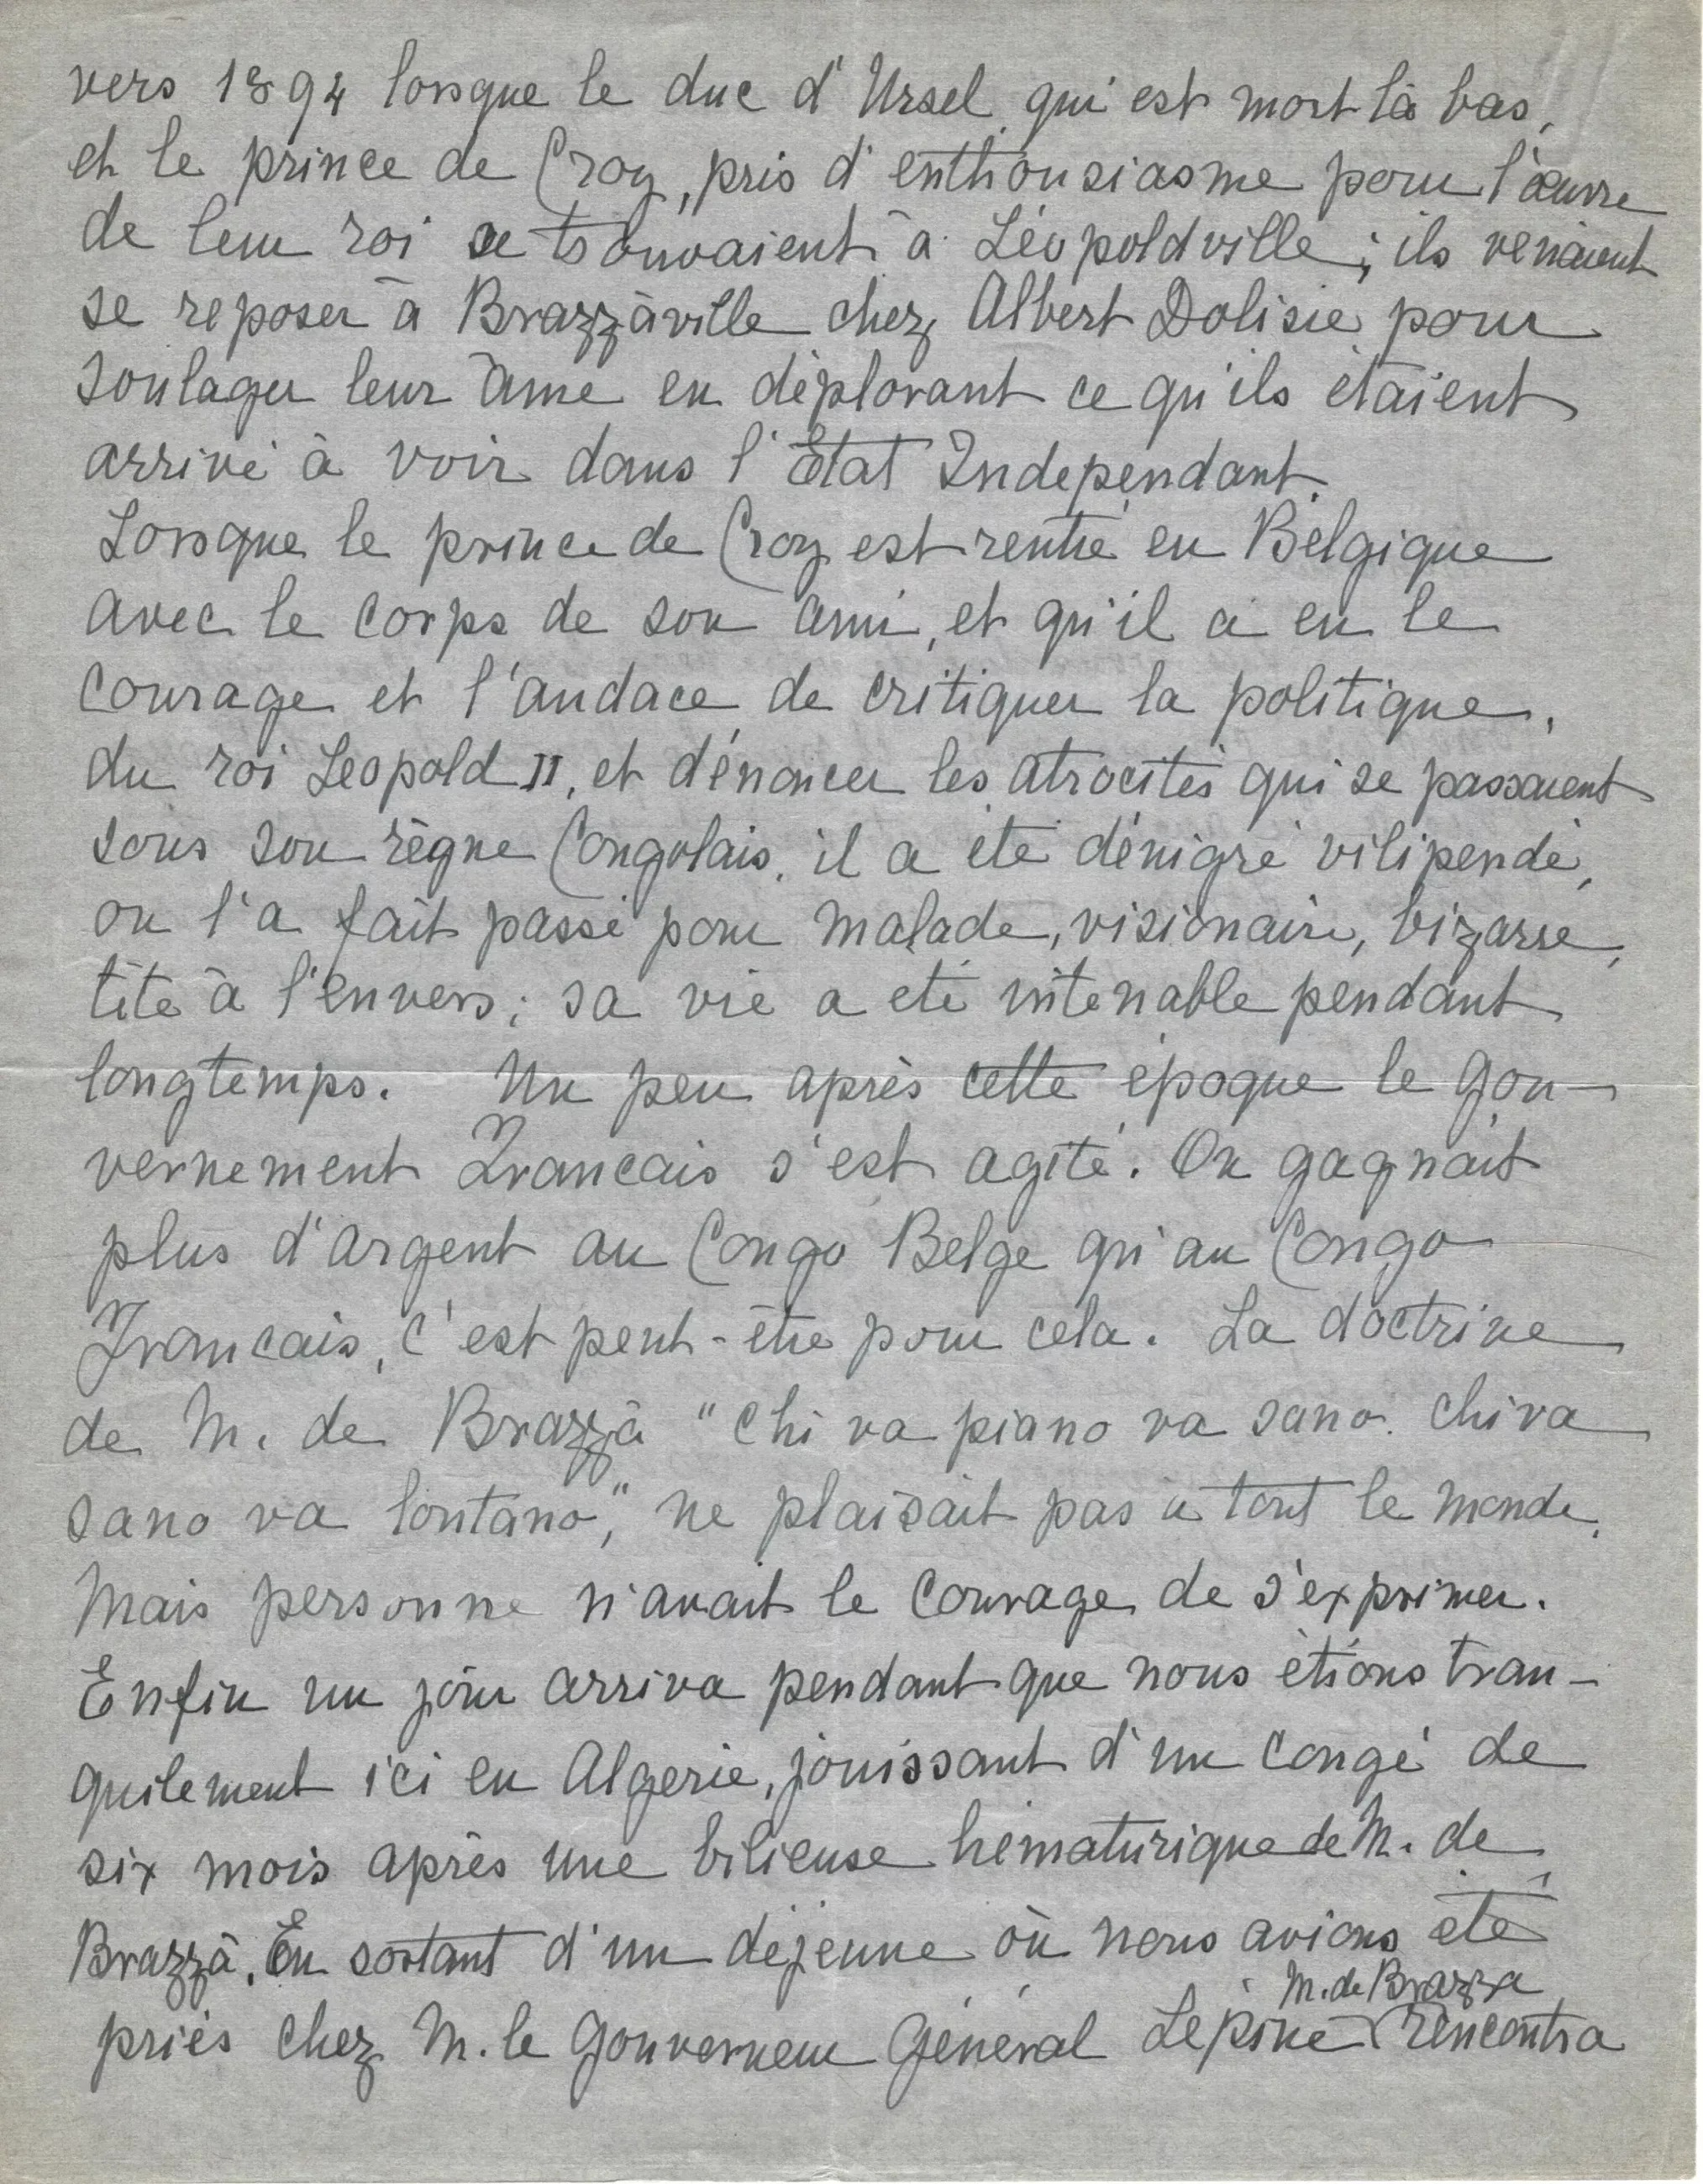 vers 1894 lorsque le duc d'Ursel qui est mort là bas,
et le prince de Croy, pris d'enthousiasme pour l'œuvre
de leur roi se trouvaient à Léopoldville; ils venaient
se reposer à Brazzàville chez Albert Dolisie pour
soulager leur âme en déplorant ce qu'ils étaient
arrivé à voir dans l'Etat Indépendant.
Lorsque le prince de Croy est rentré en Belgique
avec le corps de son ami, et qu'il a eu le
courage et l'audace de critiquer la politique,
du roi Leopold II, et dénoncer les atrocités qui se passaient
sous son règne Congolais, il a été dénigré vilipendé,
on l'a fait passé pour malade, visionaire, bizarre,
tête à l'envers; sa vie a eté intenable pendant
longtemps. Un peu après cette époque le gou-
vernement Francais s'est agité. On gagnait
plus d'argent au Congo Belge qu'au Congo
Francais, c'est peut-être pour cela. La doctrine
de M. de Brazzà "Chi va piano va sano. Chi va
sano va lontano", ne plaisait pas a tout le monde.
Mais personne n'avait le courage de s'exprimer.
Enfin un jour arriva pendant que nous étions tran-
quilement ici en Algerie, jouissant d'un congé de
six mois après une bilieuse hématurique de M. de
Brazzà. En sortant d'un déjeune où nous avions été
M. de Brazza
priés chez M. le Gouverneur Général Lépine rencontra